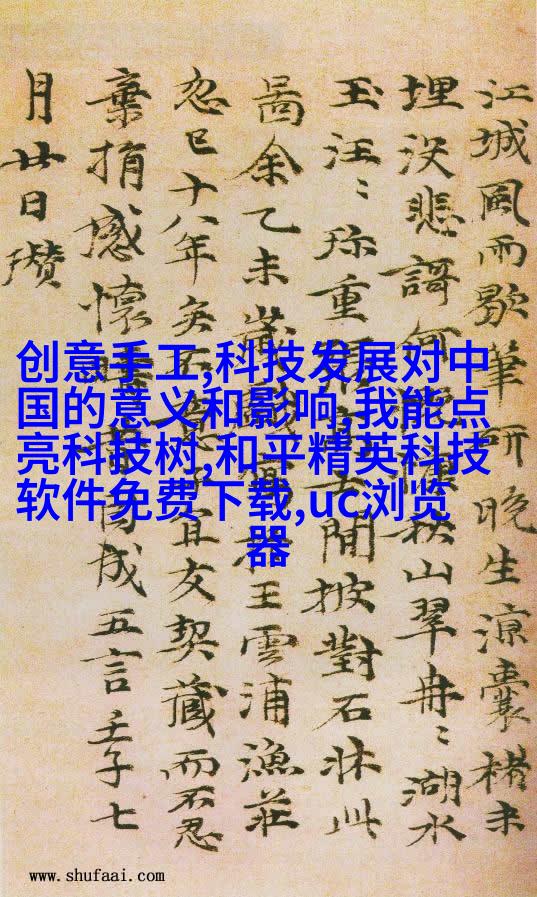 江城風雨歇筆研晚生涼囊楮未
埋没悲謌何秋山翠冉〻湖水
玉汪〻珎重士閒披對石牀此
啚余乙未歲王雲浦漁莊
忽已十八年矣宜友契藏而不忍
棄捐感懷因成五言壬子七
月廿日瓚
创意手工,科技发展对中
国的意义和影响,我能点
亮科技树,和平精英科技
软件免费下载,uc浏览
器
www.shufaai.com